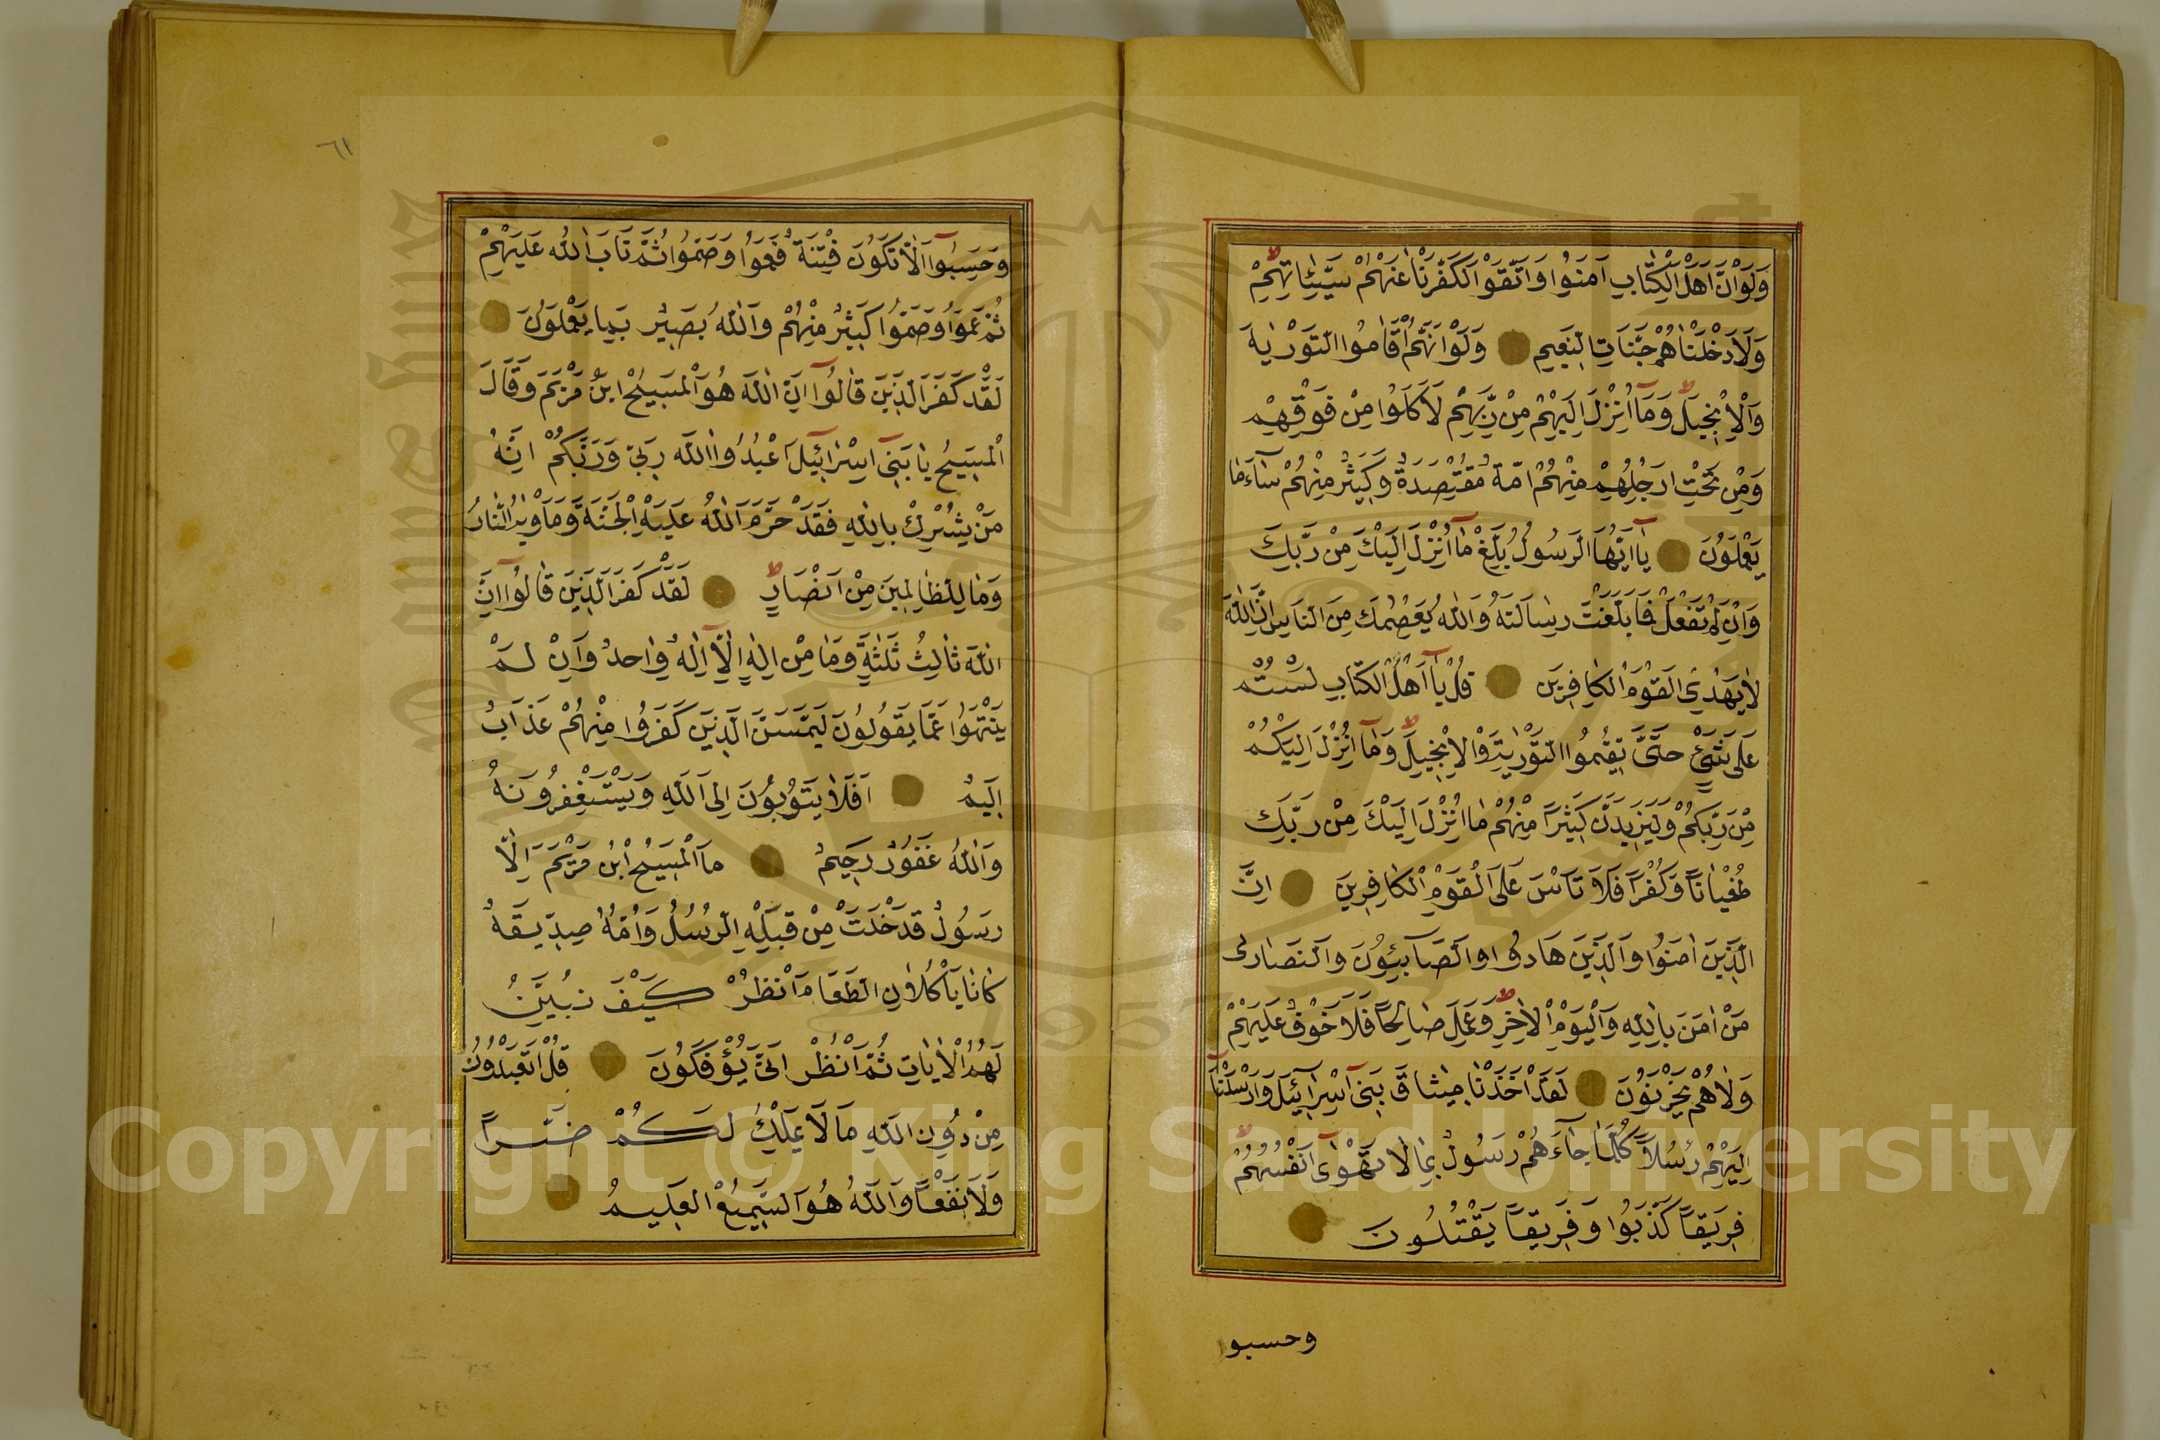 وَلَوْ اَنَّ اَهْلَ الْكِتَابِ اٰمَنُوا وَاتَّقَوْا لَكَفَّرْنَا عَنْهُمْ سَيِّئَاتِهِمْ
وَلَاَدْخَلْنَاهُمْ جَنَّاتِ النَّعِيمِ وَلَوْ اَنَّهُمْ اَقَامُوا التَّوْرٰيةَ
وَالْاِنْجِيلَ وَمَآ اُنْزِلَ اِلَيْهِمْ مِنْ رَبِّهِمْ لَاَكَلُوا مِنْ فَوْقِهِمْ
وَمِنْ تَحْتِ اَرْجُلِهِمْ مِنْهُمْ اُمَّةٌ مُقْتَصِدَةٌ وَكَثِيرٌ مِنْهُمْ سَآءَ مَا
يَعْمَلُونَ يَآ اَيُّهَا الرَّسُولُ بَلِّغْ مَآ اُنْزِلَ اِلَيْكَ مِنْ رَبِّكَ
وَاِنْ لَمْ تَفْعَلْ فَمَا بَلَّغْتَ رِسَالَتَهُ وَاللّٰهُ يَعْصِمُكَ مِنَ النَّاسِ اِنَّ اللّٰهَ
لَا يَهْدِي الْقَوْمَ الْكَافِرِينَ قُلْ يَآ اَهْلَ الْكِتَابِ لَسْتُمْ
عَلٰى شَيْءٍ حَتّٰى تُقِيمُوا التَّوْرٰيةَ وَالْاِنْجِيلَ وَمَآ اُنْزِلَ اِلَيْكُمْ
مِنْ رَبِّكُمْ وَلَيَزِيدَنَّ كَثِيرًا مِنْهُمْ مَا اُنْزِلَ اِلَيْكَ مِنْ رَبِّكَ
طُغْيَانًا وَكُفْرًا فَلَا تَاْسَ عَلَى الْقَوْمِ الْكَافِرِينَ اِنَّ
الَّذِينَ اٰمَنُوا وَالَّذِينَ هَادُوا وَالصَّابِئُونَ وَالنَّصَارٰى
مَنْ اٰمَنَ بِاللّٰهِ وَالْيَوْمِ الْاٰخِرِ وَعَمِلَ صَالِحًا فَلَا خَوْفٌ عَلَيْهِمْ
وَلَا هُمْ يَحْزَنُونَ لَقَدْ اَخَذْنَا مِيثَاقَ بَنِيٓ اِسْرَآئِيلَ وَاَرْسَلْنَآ
اِلَيْهِمْ رُسُلًا كُلَّمَا جَآءَهُمْ رَسُولٌ بِمَا لَا تَهْوٰىٓ اَنْفُسُهُمْ
فَرِيقًا كَذَّبُوا وَفَرِيقًا يَقْتُلُونَ
وحسبوا
٦١
وَحَسِبُوٓا اَلَّا تَكُونَ فِتْنَةٌ فَعَمُوا وَصَمُّوا ثُمَّ تَابَ اللّٰهُ عَلَيْهِمْ
ثُمَّ عَمُوا وَصَمُّوا كَثِيرٌ مِنْهُمْ وَاللّٰهُ بَصِيرٌ بِمَا يَعْمَلُونَ
لَقَدْ كَفَرَ الَّذِينَ قَالُوٓا اِنَّ اللّٰهَ هُوَ الْمَسِيحُ ابْنُ مَرْيَمَ وَقَالَ
الْمَسِيحُ يَا بَنِيٓ اِسْرَآئِيلَ اعْبُدُوا اللّٰهَ رَبِّي وَرَبَّكُمْ اِنَّهُ
مَنْ يُشْرِكْ بِاللّٰهِ فَقَدْ حَرَّمَ اللّٰهُ عَلَيْهِ الْجَنَّةَ وَمَاْوٰيهُ النَّارُ
وَمَا لِلظَّالِمِينَ مِنْ اَنْصَارٍ لَقَدْ كَفَرَ الَّذِينَ قَالُوٓا اِنَّ
اللّٰهَ ثَالِثُ ثَلٰثَةٍ وَمَا مِنْ اِلٰهٍ اِلَّآ اِلٰهٌ وَاحِدٌ وَاِنْ لَمْ
يَنْتَهُوا عَمَّا يَقُولُونَ لَيَمَسَّنَّ الَّذِينَ كَفَرُوا مِنْهُمْ عَذَابٌ
اَلِيمٌ اَفَلَا يَتُوبُونَ اِلَى اللّٰهِ وَيَسْتَغْفِرُونَهُ
وَاللّٰهُ غَفُورٌ رَحِيمٌ مَا الْمَسِيحُ ابْنُ مَرْيَمَ اِلَّا
رَسُولٌ قَدْ خَلَتْ مِنْ قَبْلِهِ الرُّسُلُ وَاُمُّهُ صِدِّيقَةٌ
كَانَا يَاْكُلَانِ الطَّعَامَ اَنْظُرْ كَيْفَ نُبَيِّنُ
لَهُمُ الْاٰيَاتِ ثُمَّ انْظُرْ اَنّٰى يُؤْفَكُونَ قُلْ اَتَعْبُدُونَ
مِنْ دُونِ اللّٰهِ مَا لَا يَمْلِكُ لَكُمْ ضَرًّا
وَلَا نَفْعًا وَاللّٰهُ هُوَ السَّمِيعُ الْعَلِيمُ
Copyright © King Saud University
King Saud University
1957